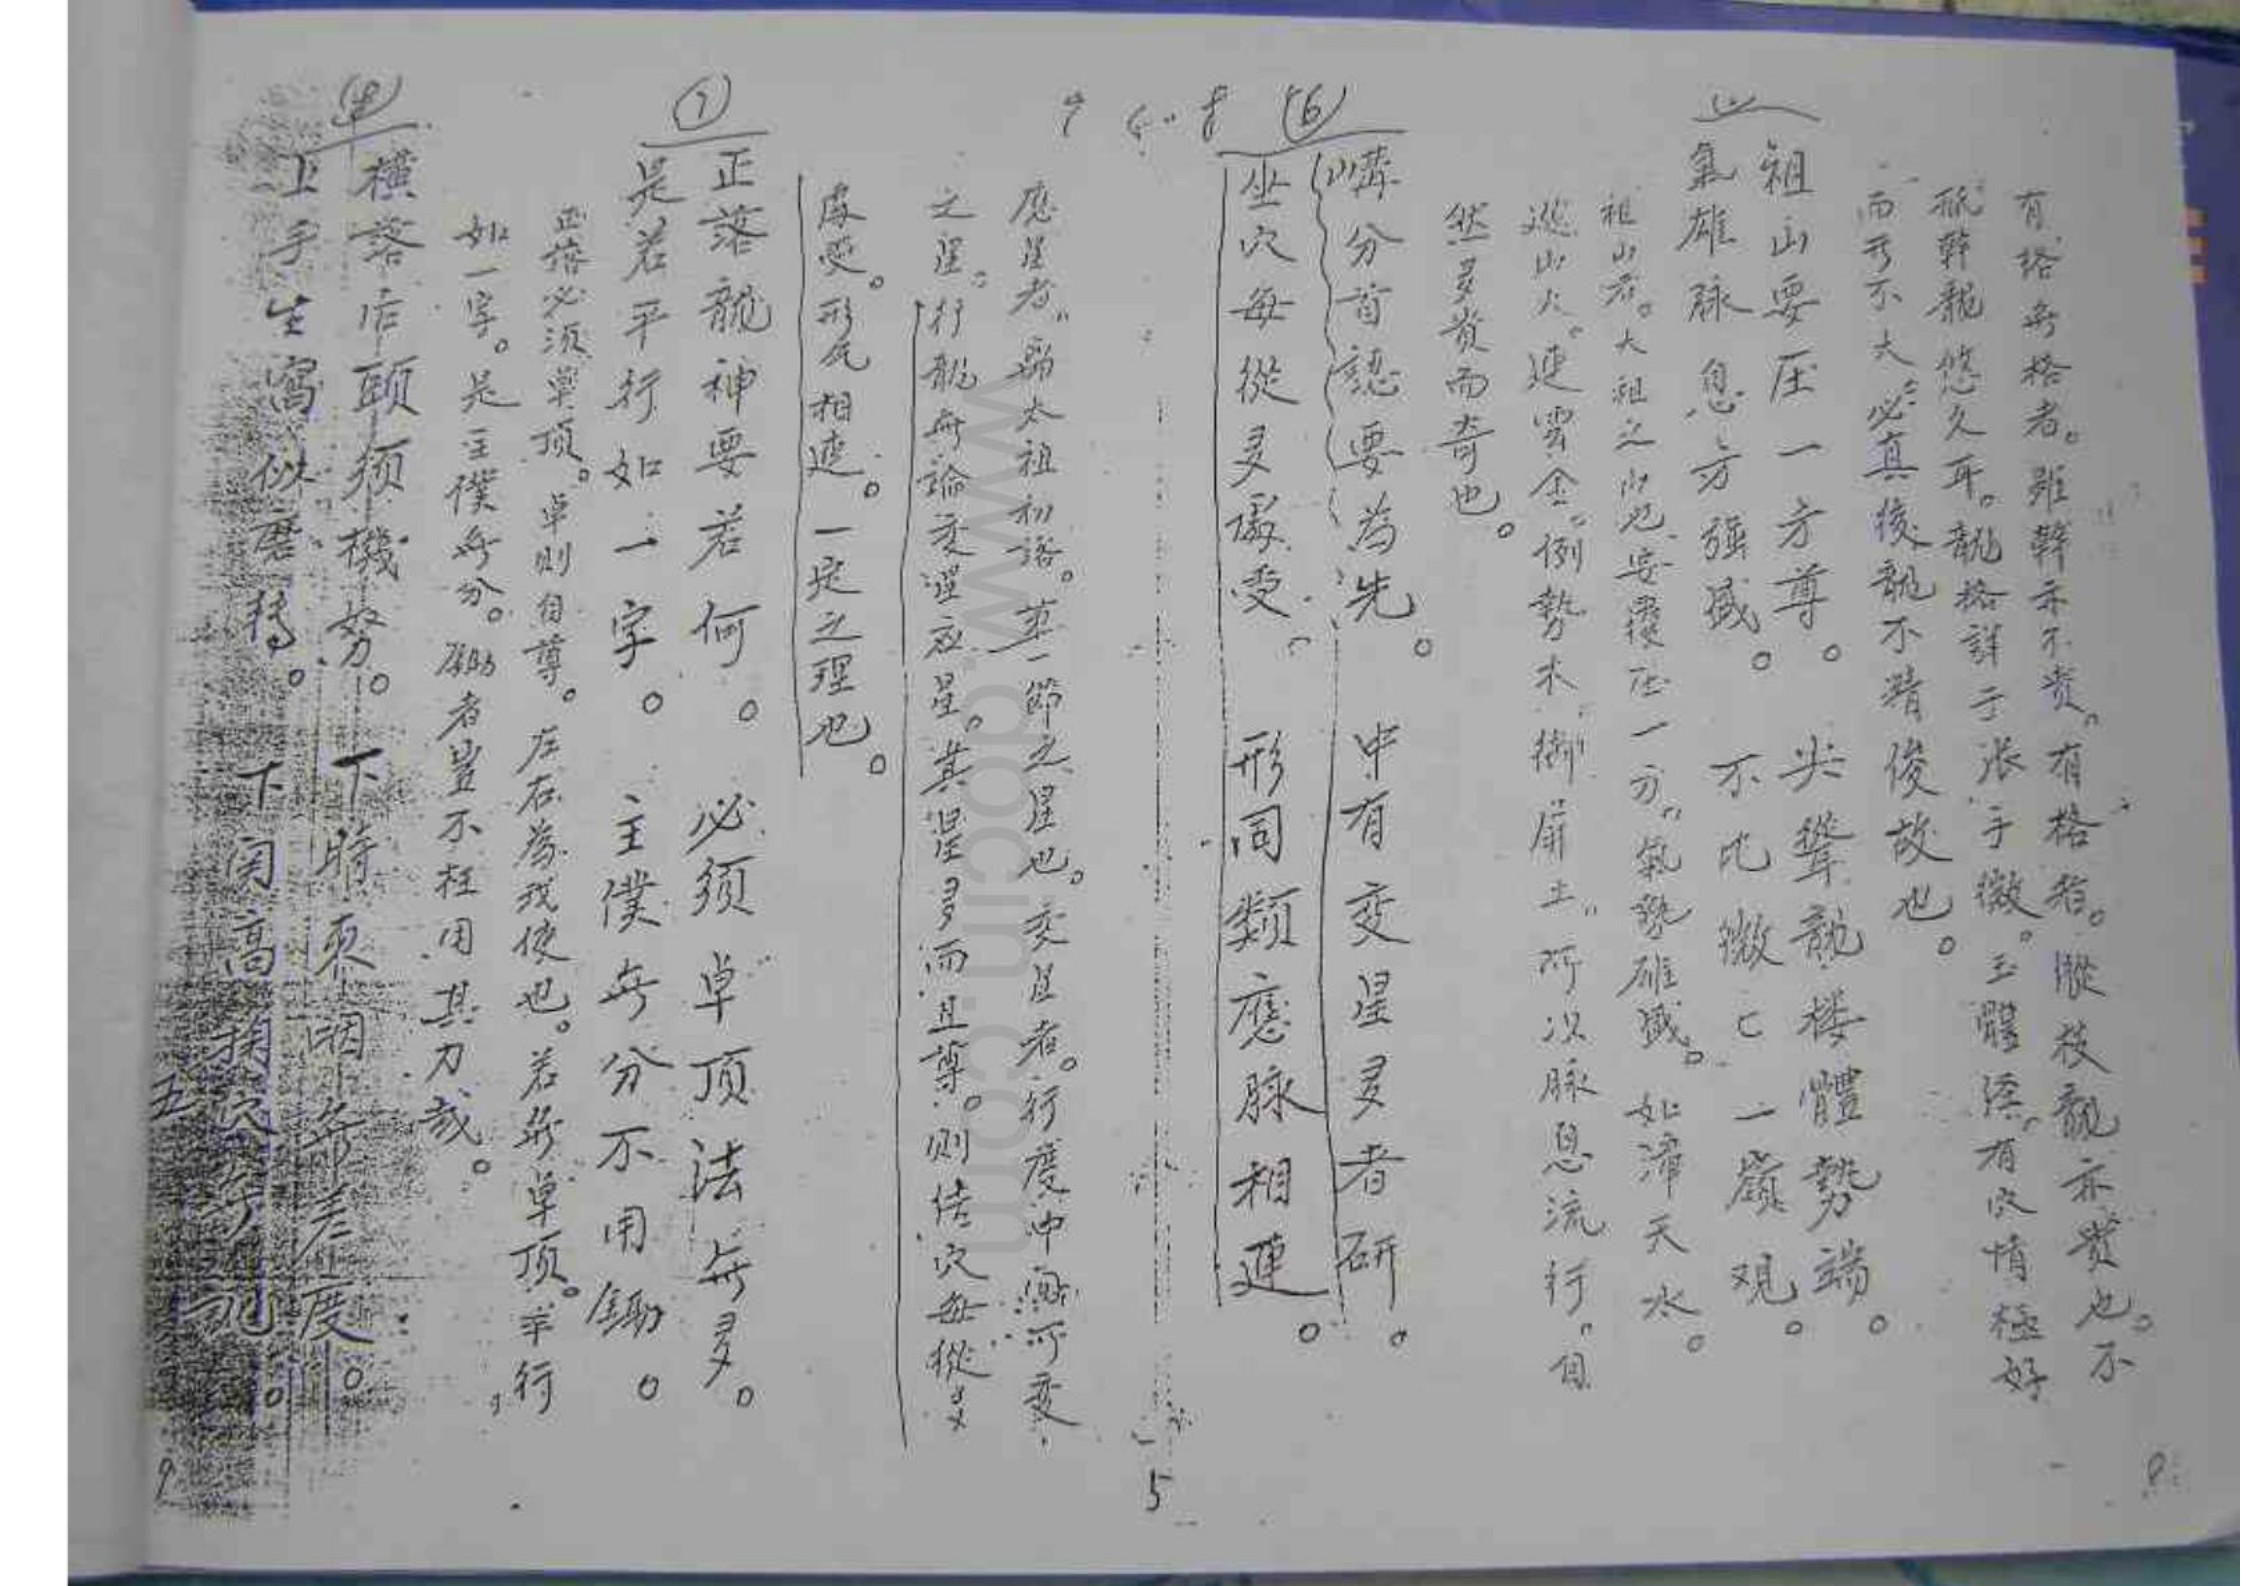 有格無格者。雖幹亦不貴。有格者。縱枝龍亦贵也。不
幹龍悠久耳。龍格詳于张子微。玉髓经。有穴情極好
而不大必真後龍不清俊故也。
祖山要压一方尊。尖聳龍楼體勢端。
氣雄脉息方强盛。不比微亡一嶺观。
祖山者。大祖之山也。要压一方。氣勢雄盛。如滞天水。
山火。連雲金。例勢木。御屏土。所以脉息流行。自
然多貴而奇也。
⑥
嶂分首認要為先。中有变星多者研。
坐穴每從多處受。形同類應脉相連。
應星者。太祖初落。第一節之星也。变星者。行度冲间所变
之星。行龍無論变星应星。其星多而且尊。则结穴每從多
處受。形气相连。一定之理也。
⑦
正落龍神要若何。必须卓顶法無多。
是若平行如一字。主僕無分不用鋤。
正落必须卓顶。卓则自尊。左右為我使也。若無卓顶。平行
如一字。是主僕無分。鋤者豈不枉用其力哉。
橫落后頭须機努。下睛。無差度。
上手生窩似磨转。下関高穴
五
5
9